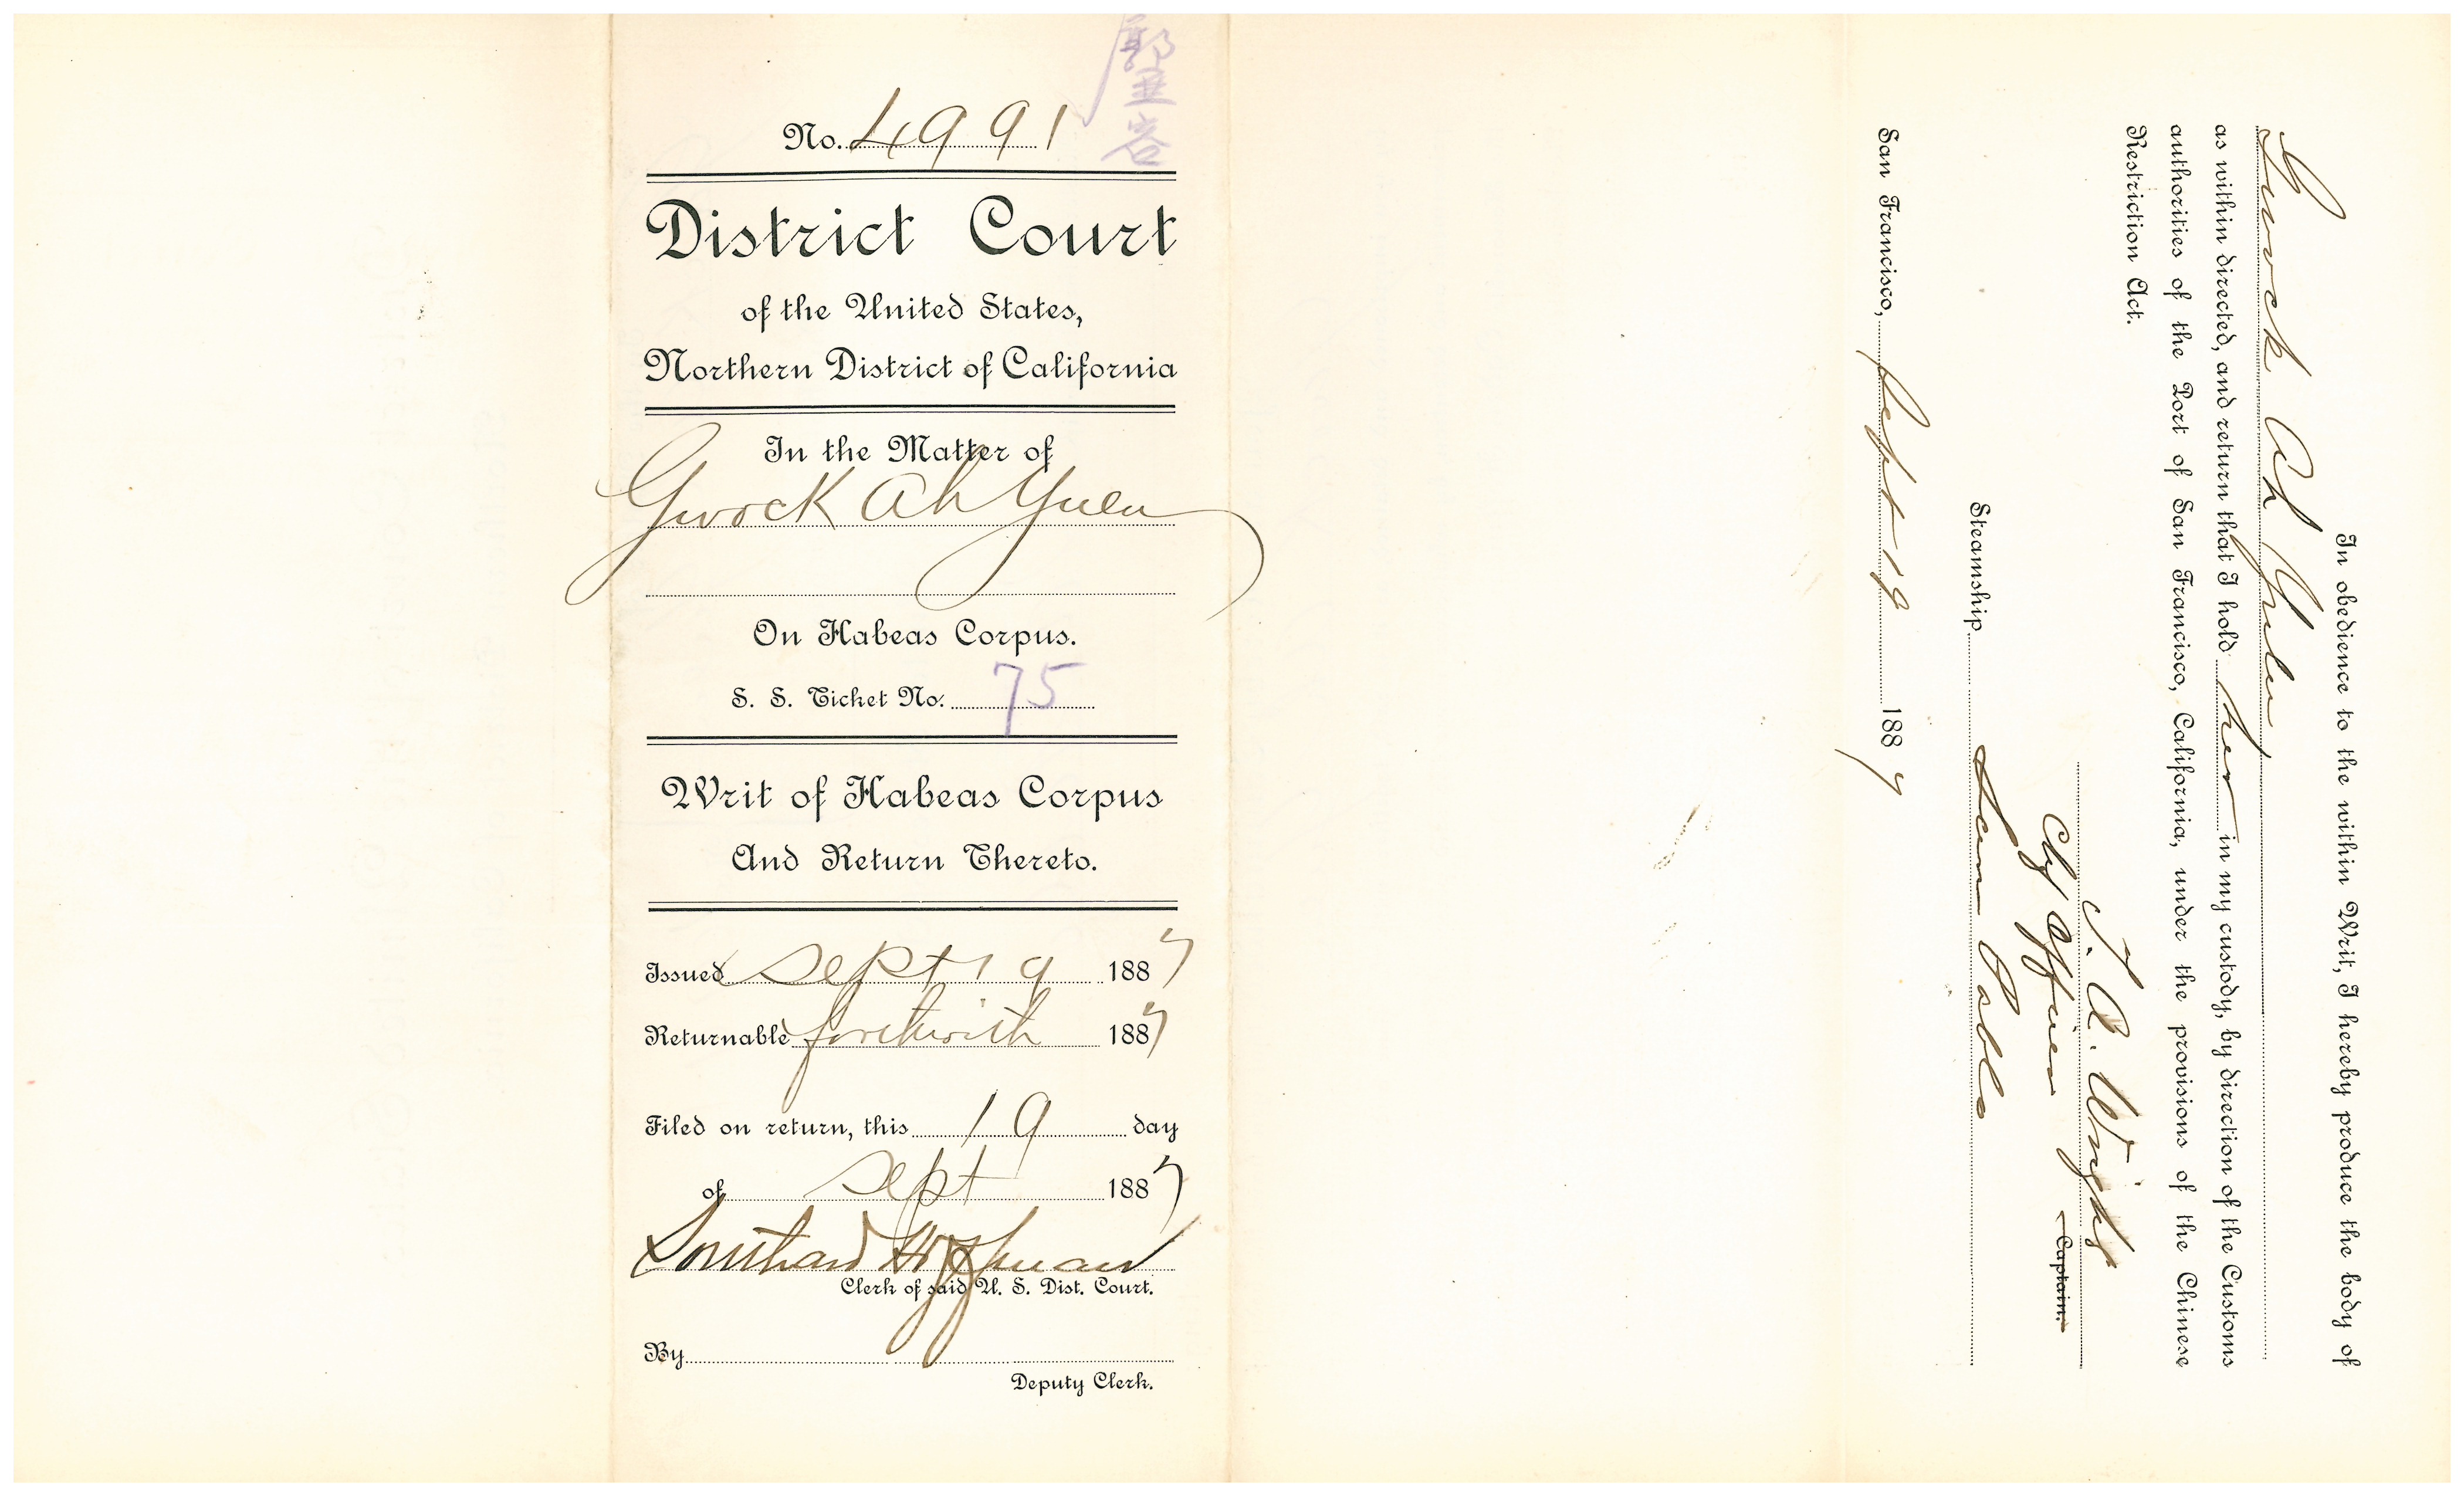 No. 4991
District Court
of the United States,
Northern District of California
In the Matter of
Gwock Ah Yuen
On Habeas Corpus.
S. S. Ticket No. 75
Writ of Habeas Corpus
And Return Thereto.
Issued Sept 19 1887
Returnable forthwith 1887
Filed on return, this 19 day
of Sept 1887
Southard Hoffman
Clerk of said U. S. Dist. Court.
By
Deputy Clerk.
In obedience to the within Writ, I hereby produce the body of
Gwock Ah Yuen
as within directed, and return that I hold her in my custody, by direction of the Customs
authorities of the Port of San Francisco, California, under the provisions of the Chinese
Restriction Act.
Wright
Chf Officer Captain.
Steamship San Pablo
San Francisco, Sept 19 1887